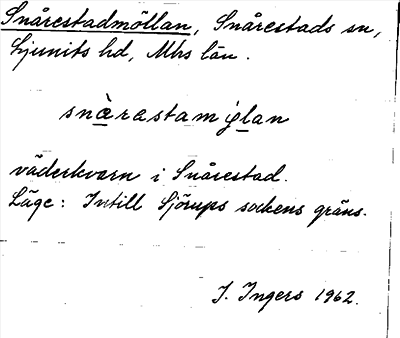 Snårestadmöllan, Snårestads sn,
Ljunits hd, Mhs län.
snàrastam
väderkvarn i Snårestad.
Läge: Intill Sjörups sockens gräns.
I. Ingers 1962.